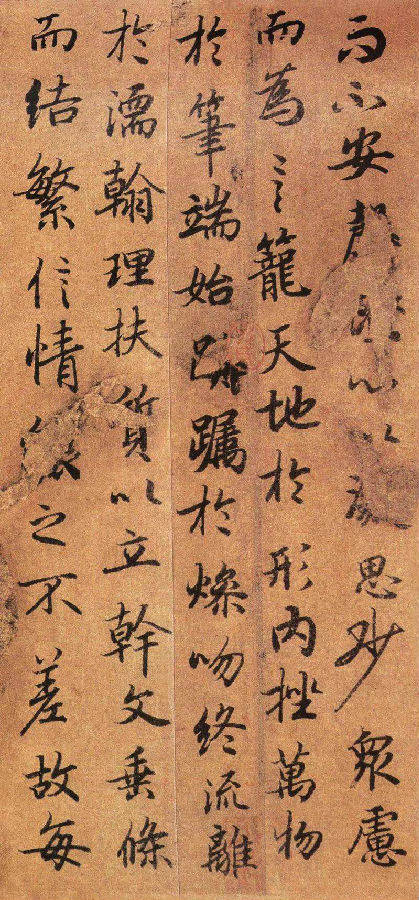 而不安罄心以思眇衆慮
而為言籠天地於形內挫萬物
於筆端始躑躅於燥吻終流離
於濡翰理扶質以立幹文垂條
而結繁信情之不差故每